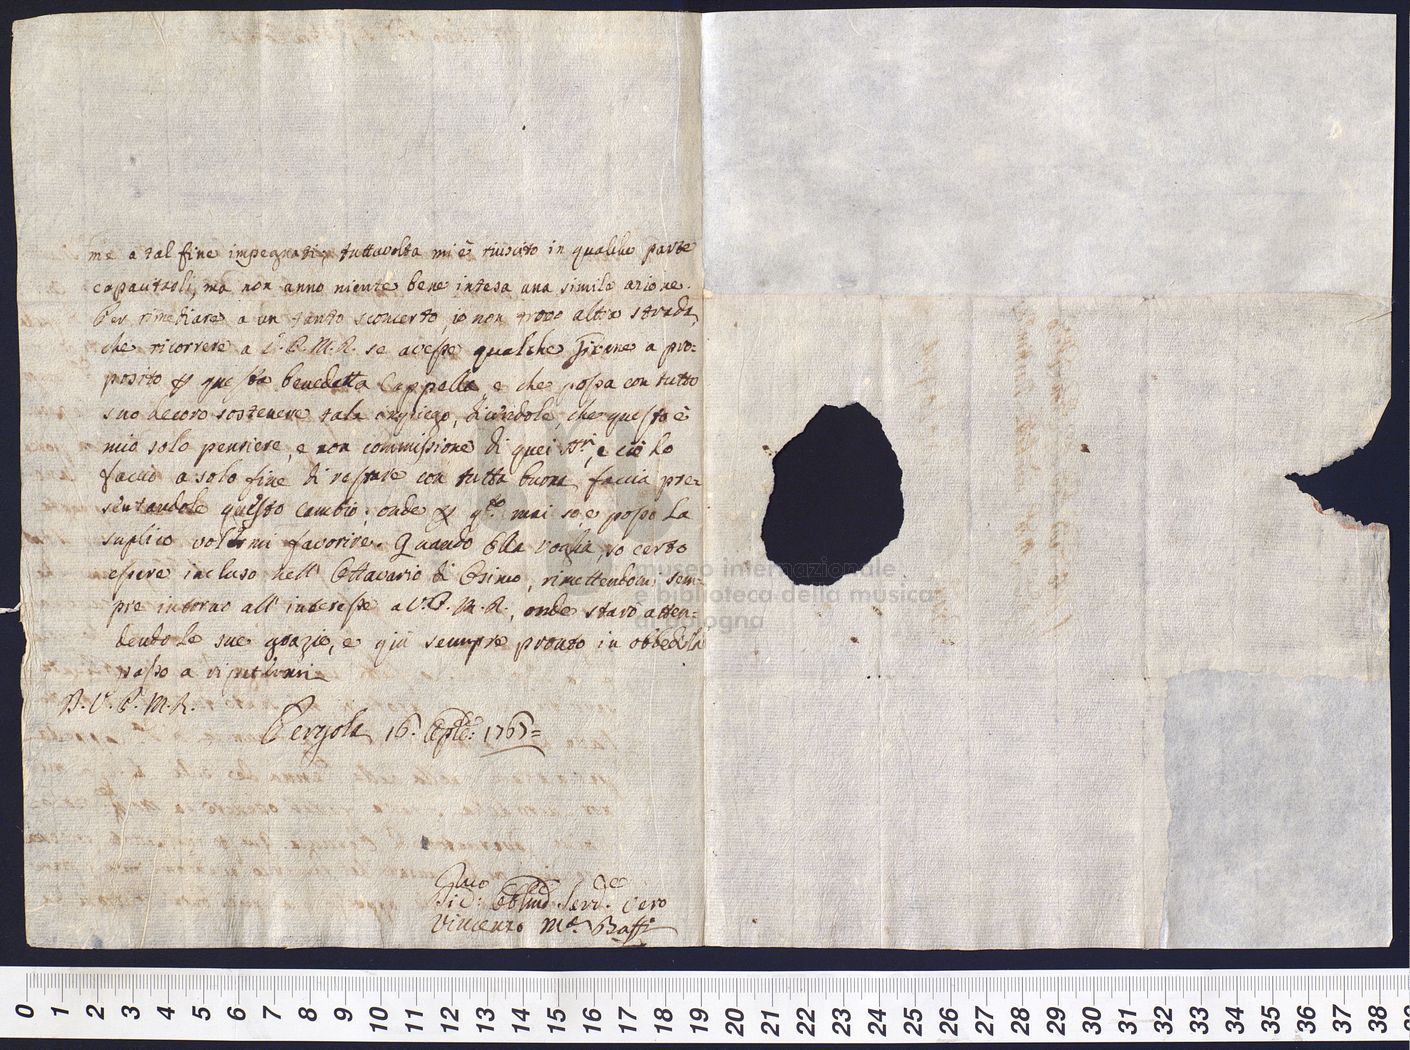 me a tal fine impegnati, tuttavolta mi è riuscito in qualche parte
capacitarli, ma non anno niente bene intesa una simile azione.
Per rimediare a un tanto sconcerto, io non trovo altra strada,
che ricorrere a V. P. M. R. se avesse qualche Tirone a pro=
posito p questa benedetta Cappella e che possa con tutto
suo decoro sostenere tale impiego, dicendole, che questo è
mio solo pensiere, e non commissione di quei SSri, e ciò lo
faccio a solo fine di restare con tutta buona faccia pre=
sentandole questo cambio; onde p qto mai so, e posso La
suplico volermi favorire. Quando Ella voglia, vo certo
essere incluso nell' Ottavario di Osimo, rimettendomi sem=
pre intorno all' interesse a V. P. M. R., onde starò atten=
dendo le sue grazie, e qui sempre pronto in obbedirla
passo a ripetermi
D. V. P. M. R.
Pergola 16. 7bre: 1767=
Obblmo Servre Vero
Vincenzo Ma
museo internazionale
e biblioteca della musica
di bologna
0 1 2 3 4 5 6 7 8 9 10 11 12 13 14 15 16 17 18 19 20 21 22 23 24 25 26 27 28 29 30 31 32 33 34 35 36 37 38